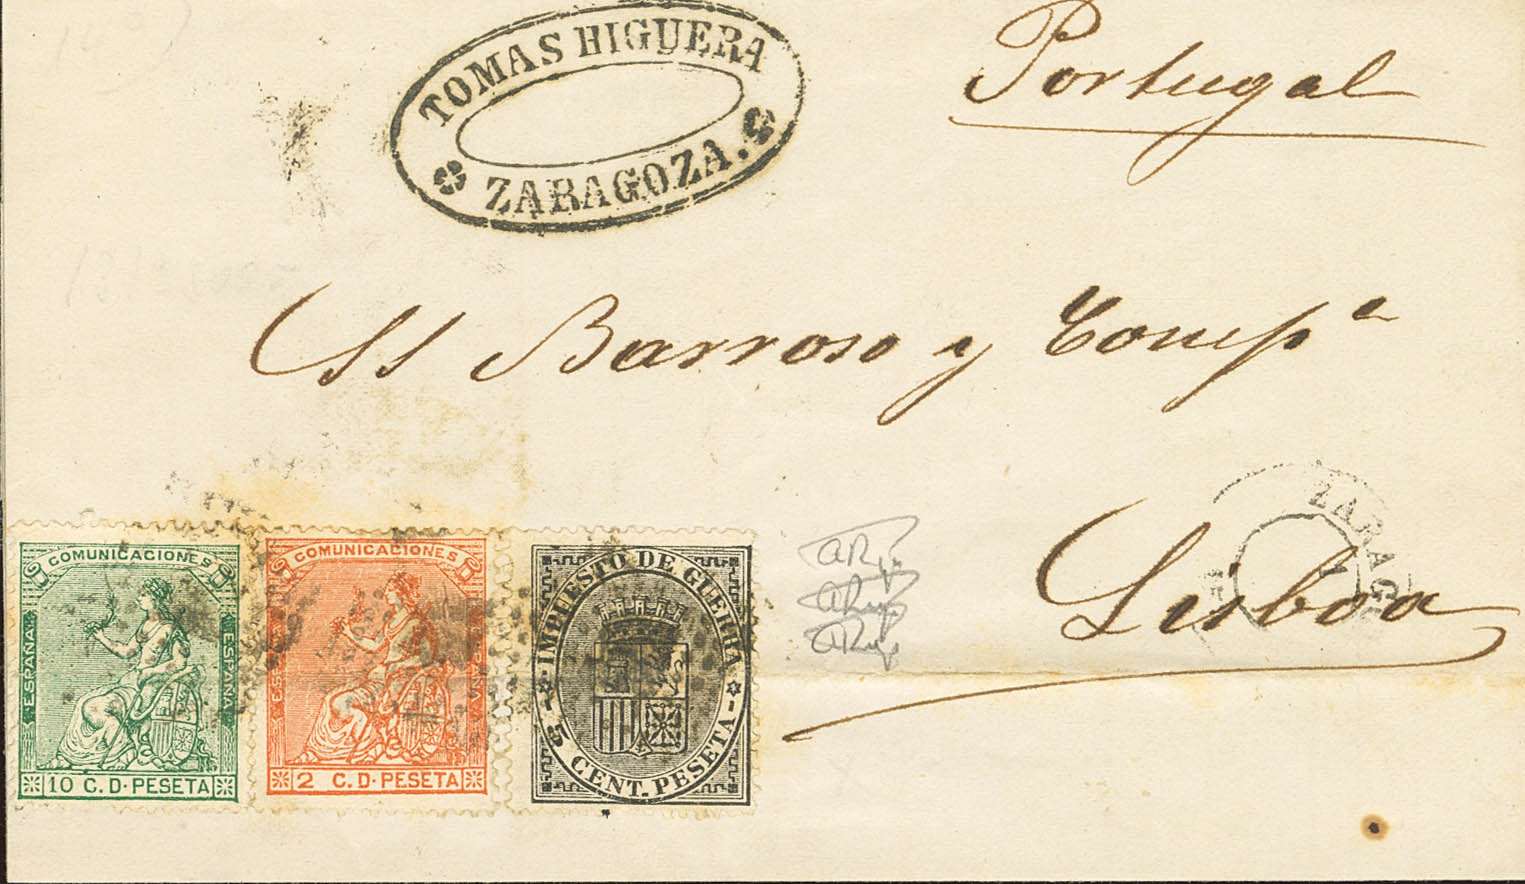 TOMAS HIGUERA
ZARAGOZA.
Portugal
SS Barroso y Compª
Lisboa
ZARAGO
COMUNICACIONES
ESPAÑA
ESPAÑA
10 C. D. PESETA
COMUNICACIONES
ESPAÑA
ESPAÑA
2 C. D. PESETA
IMPUESTO DE GUERRA
5 CENT. PESETA